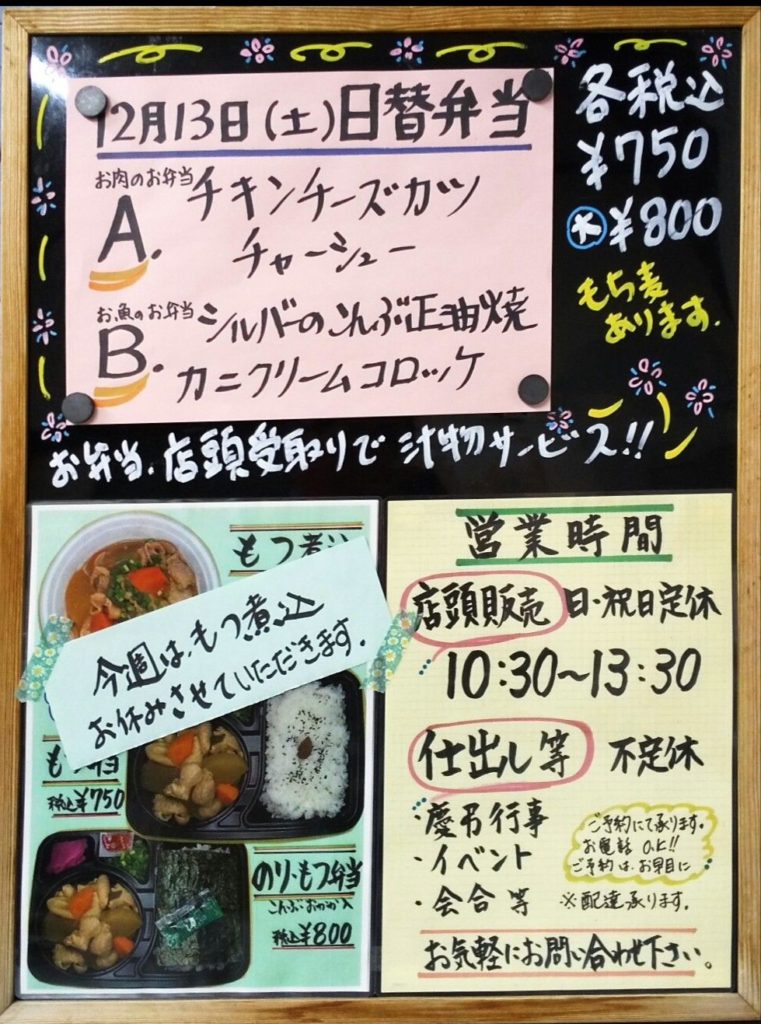 12月13日(土)日替弁当
お肉のお弁当
A. チキンチーズカツ
チャーシュー
お魚のお弁当
B. シルバーのこんぶ正油焼
カニクリームコロッケ
各税込
¥750
大 ¥800
もち麦
あります.
お弁当、店頭受取りで 汁物サービス!!
もつ煮込
今週は、もつ煮込
お休みさせていただきます.
税込¥750
のり・もつ弁当
こんぶ・おかか入
税込¥800
営業時間
店頭販売 日・祝日定休
10:30~13:30
仕出し等 不定休
・慶弔行事
・イベント
・会合等
ご予約にて承ります.
お電話 O.K!!
ご予約は、お早目に
※配達承ります.
お気軽にお問い合わせ下さい。